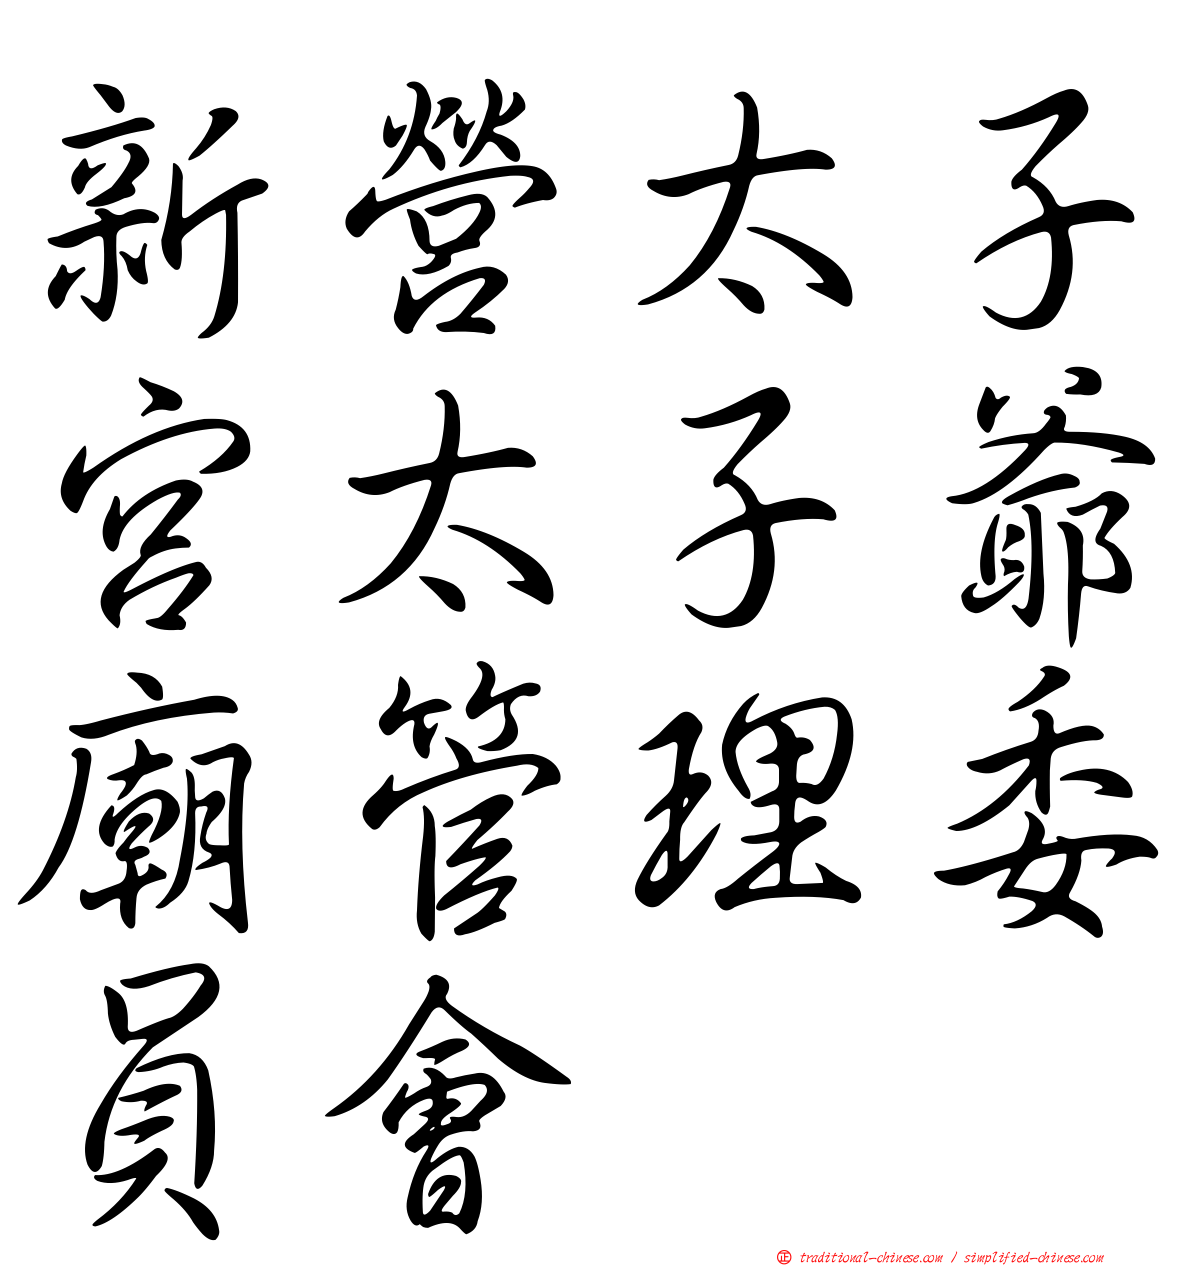 新營太子
宮太子爺
廟管理委
員會
正 traditional-chinese.com / simplified-chinese.com